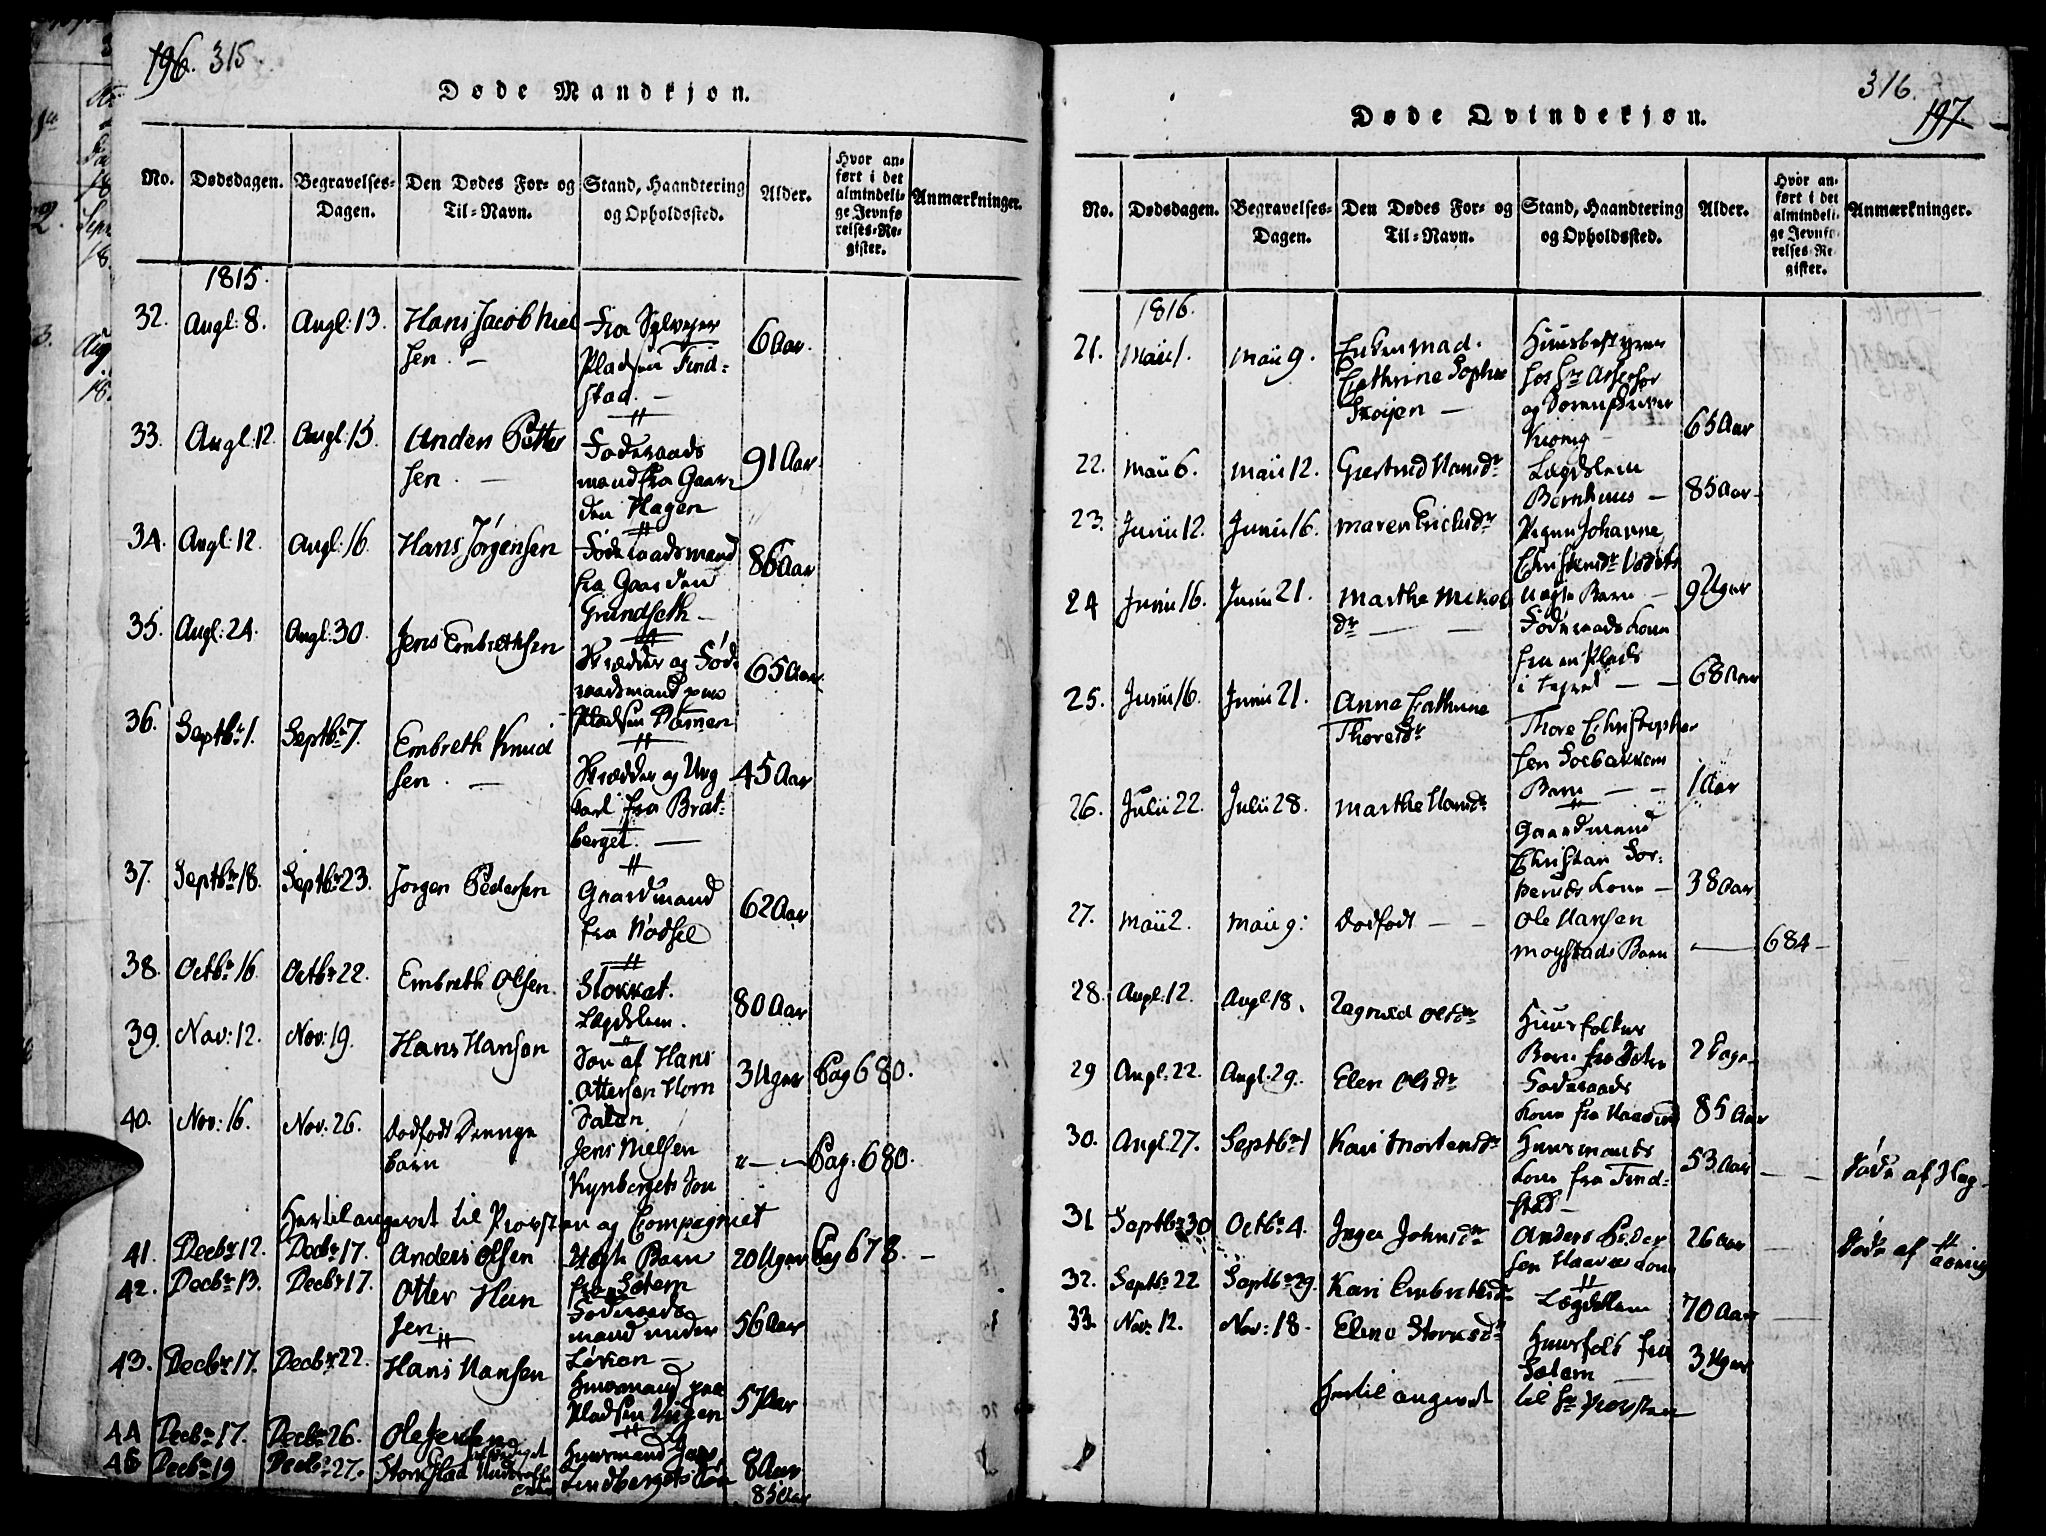 196. 315.
Døde Mandkjøn.
No. Dødsdagen. Begravelses-Dagen. Den Dødes For- og Til-Navn. Stand, Haandtering og Opholdssted. Alder. Hvor anført i det almindelige Jevnførelses-Register. Anmærkninger.
1815.
32. Augl: 8. Augl: 13. Hans Jacob Niel
sen. — Fra
Pladsen Tind=
stad. — 6 Aar.
33. Augl: 12 Augl: 15. Anders Petter
sen. — Føderaads
mand fra Gaar=
den Hagen 91 Aar.
34. Augl: 12. Augl: 16. Hans Jørgensen Føderaadsmand
fra Gaarden
Grundseth — 86 Aar
35. Augl: 24. Augl: 30. Jens Embrethsen Skrædder og Føde
raadsmand paa
Pladsen 65 Aar.
36. Septbr 1. Septbr 7. Embreth Knud
sen. — Skrædder og Ung
karl fra Brat=
berget. — 45 Aar
37. Septbr 18. Septbr 23. Jørgen Pedersen Gaardmand
fra Nødsel 62 Aar
38. Octbr 16. Octbr 22. Embreth Olsen. Stokket.
Lægdslem. 80 Aar
39. Nov: 12. Nov: 19. Hans Hansen Søn af Hans
Ottersen Horn
dalen. 3 Uger Pag 680.
40. Nov: 16. Nov: 26. Dødfødt Drenge
barn Jens Nielsen
Kynbergets Søn " — — Pag: 680.
Hertil angivet til Provsten og Compagniet
41. Decbr 12. Decbr 17. Anders Olsen Uægte Barn
fra Sætern 20 Uger Pag 678. —
42. Decbr 13. Decbr 17. Otter Han
sen. Føderaads
mand under
Løken — 56 Aar
43. Decbr 17. Decbr 22. Hans Hansen Huusmand paa
Pladsen 57 Aar
44 Decbr 17. Decbr 26. Ole Huusmand
Lindbergets Søn 8 Aar
45 Decbr 19 Decbr 27. 85 Aar
316.
197.
Døde Qvindekjøn.
No. Dødsdagen. Begravelses-Dagen. Den Dødes For- og Til-Navn. Stand, Haandtering og Opholdssted. Alder. Hvor anført i det almindelige Jevnførelses-Register. Anmærkninger.
1816.
21. Maii 1. Maii 9. Enken Mad.
Cathrine Sophie
Skøyen — Huusbestyrer
hos Hr Assessor
og Sorenskriver
65 Aar
22. Maii 6. Maii 12. Giertrud Hansdr Lægdslem
Bernhuus — 85 Aar.
23. Junii 12. Junii 16. Maren Erichsdr Pigen Johanne
Christensdr
Uægte Barn — 9 Uger
24 Junii 16. Junii 21. Marthe Mikels
dr — — Føderaadskone
fra en Plads
i — — 68 Aar
25. Junii 16. Junii 21. Anne Cathrine
Thoresdr Thore Christopher
sen Soebakkens
Barn — — 1 Aar
26. Julii 22. Julii 28. Marthe Hansdr Gaardmand
Christian
Kone — 38 Aar.
27. Maii 2. Maii 9. Dødfødt — — Ole Hansen
Moystads Barn — 684 —
28. Augl: 12. Augl 18. Ragnild Olsdr Huusfolkes
Barn fra 2 Dage
29 Augl: 22. Augl: 29. Elen Olsdr Føderaads
kone fra 85 Aar
30. Augl 27. Septbr 1 Kari Mortensdr Huusmands
kone fra Tind=
stad — 53 Aar — — døde af
31 Septbr 30 Octbr 4. Inger Johnsdr Anders Peder
sen kone 26 Aar — døde af
32. Septbr 22 Septbr 29. Kari Embrethsdr Lægdslem 70 Aar —
33. Nov: 12. Nov: 18. Elene Huusfolk fra
Sætern — 3 Uger
Hertil angivet til Hr Provsten